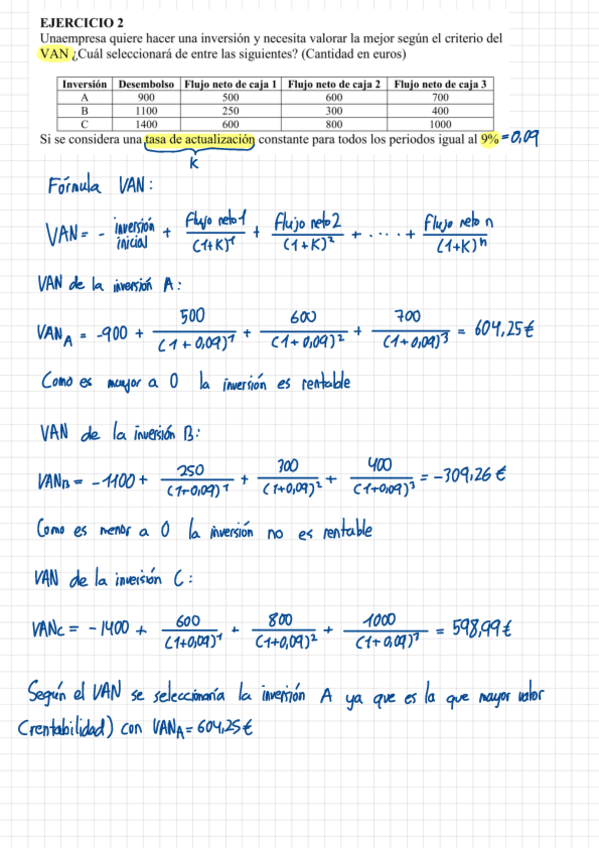 EJERCICIO 2
Unaempresa quiere hacer una inversión y necesita valorar la mejor según el criterio del
VAN ¿Cuál seleccionará de entre las siguientes? (Cantidad en euros)
Inversión Desembolso Flujo neto de caja 1 Flujo neto de caja 2 Flujo neto de caja 3
A 900 500 600 700
B 1100 250 300 400
C 1400 600 800 1000
Si se considera una tasa de actualización constante para todos los periodos igual al 9% = 0,09
K
Fórmula VAN:
VAN = - inversión inicial + Flujo neto1/(1+K)¹ + Flujo neto2/(1+K)² + ..... + Flujo neto n/(1+K)ⁿ
VAN de la inversión A:
VAN_A = -900 + 500/(1+0,09)¹ + 600/(1+0,09)² + 700/(1+0,09)³ = 604,25€
Como es mayor a 0 la inversión es rentable
VAN de la inversión B:
VAN_B = -1100 + 250/(1+0,09)¹ + 300/(1+0,09)² + 400/(1+0,09)³ = -309,26€
Como es menor a 0 la inversión no es rentable
VAN de la inversión C:
VAN_C = -1400 + 600/(1+0,09)¹ + 800/(1+0,09)² + 1000/(1+0,09)³ = 598,99€
Según el VAN se seleccionaría la inversión A ya que es la que mayor valor
(rentabilidad) con VAN_A = 604,25€